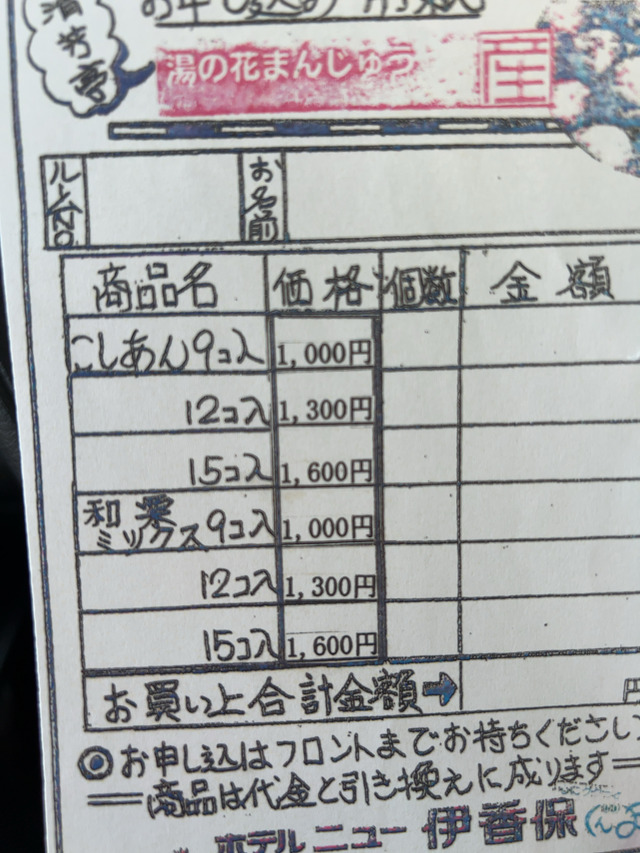 清芳亭
お申し込み用紙
湯の花まんじゅう
ルームNO
お名前
商品名 価格 個数 金額
こしあん9コ入 1,000円
12コ入 1,300円
15コ入 1,600円
和栗ミックス9コ入 1,000円
12コ入 1,300円
15コ入 1,600円
お買い上合計金額➡ 円
◎お申し込はフロントまでお持ちください
商品は代金と引き換えに成ります
ホテルニュー伊香保